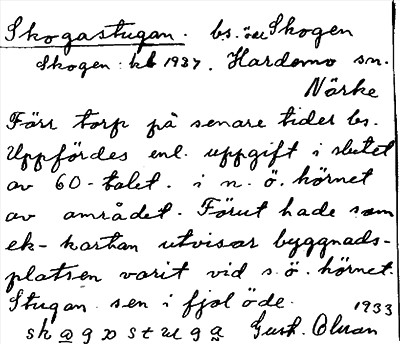 Skogastugan. bs. öde Skogen
Skogen: kb 1937. Hardemo sn.
Närke
Förr torp på senare tider bs.
Uppfördes enl. uppgift i slutet
av 60-talet. i n. ö. hörnet
av området. Förut hade som
ek-kartan utvisar byggnads-
platsen varit vid s. ö. hörnet.
Stugan sen i fjol öde.
1933
Gust. Olman